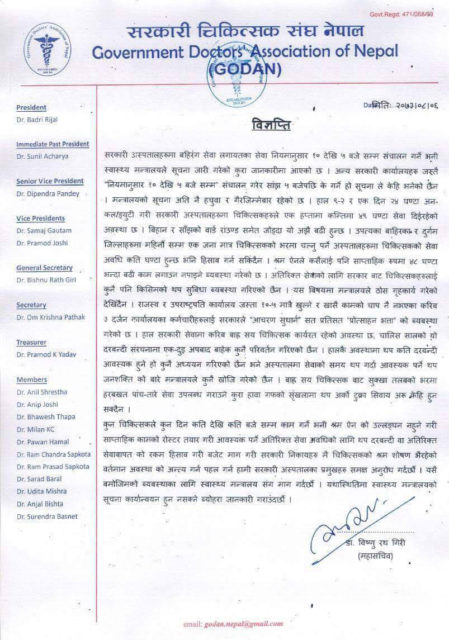 Govt.Regd: 471/068/69
सरकारी चिकित्सक संघ नेपाल
Government Doctors' Association of Nepal
(GODAN)
मिति: २०७३।०८।०६
विज्ञप्ति
President
Dr. Badri Rijal
Immediate Past President
Dr. Sunil Acharya
Senior Vice President
Dr. Dipendra Pandey
Vice Presidents
Dr. Samaj Gautam
Dr. Pramod Joshi
General Secretary
Dr. Bishnu Rath Giri
Secretary
Dr. Om Krishna Pathak
Treasurer
Dr. Pramod K Yadav
Members
Dr. Anil Shrestha
Dr. Anip Joshi
Dr. Bhawesh Thapa
Dr. Milan KC
Dr. Pawan Hamal
Dr. Ram Chandra Sapkota
Dr. Ram Prasad Sapkota
Dr. Sarad Baral
Dr. Udita Mishra
Dr. Anjal Bishta
Dr. Surendra Basnet
सरकारी अस्पतालहरूमा बहिरंग सेवा लगायतका सेवा नियमानुसार १० देखि ५ बजे सम्म संचालन गर्ने भनी
स्वास्थ्य मन्त्रालयले सूचना जारी गरेको कुरा जानकारीमा आएको छ । अन्य सरकारी कार्यालयहरु जस्तै
"नियमानुसार १० देखि ५ बजे सम्म" संचालन गरेर सांझ ५ बजेपछि के गर्ने हो सूचना ले केहि भनेको छैन
। मन्त्रालयको सूचना अति नै हचुवा र गैरजिम्मेबार रहेको छ । हाल ९-२ र एक दिन २४ घण्टा अन-
कल/ड्युटी गरी सरकारी अस्पतालहरुमा चिकित्सकहरुले एक हप्तामा कम्तिमा ४९ घण्टा सेवा दिईरहेको
अवस्था छ । बिहान र साँझको वार्ड राउण्ड समेत जोड्दा यो अझै बढी हुन्छ । उपत्यका बाहिरका र दुर्गम
जिल्लाहरुमा महिनौं सम्म एक जना मात्र चिकित्सकको भरमा चल्नु पर्ने अस्पतालहरुमा चिकित्सकको सेवा
अवधि कति घण्टा हुन्छ भनि हिसाब गर्न सकिदैन । श्रम ऐनले कसैलाई पनि साप्ताहिक रुपमा ४८ घण्टा
भन्दा बढी काम लगाउन नपाइने ब्यवस्था गरेको छ । अतिरिक्त सेवाको लागि सरकार बाट चिकित्सकहरुलाई
कुनै पनि किसिमको थप सुबिधा ब्यवस्था गरिएको छैन । यस विषयमा मन्त्रालयले ठोस गृहकार्य गरेको
देखिदैन । राजस्व र उपराष्ट्रपति कार्यालय जस्ता १०-५ मात्रै खुल्ने र खासै कामको चाप नै नभएका करिब
३ दर्जन कार्यालयका कर्मचारीहरुलाई सरकारले "आचरण सुधार्न" सत प्रतिसत "प्रोत्साहन भत्ता" को ब्यवस्था
गरेको छ । हाल सरकारी सेवामा करिब बाह्र सय चिकित्सक कार्यरत रहेको अवस्था छ, चालिस सालको यो
दरबन्दी संरचनामा एक-दुइ अपबाद बाहेक कुनै परिवर्तन गरिएको छैन । हालकै अवस्थामा थप कति दरबन्दी
आवस्यक हुने हो कुनै अध्ययन गरिएको छैन भने अस्पतालमा सेवाको समय थप गर्दा आवस्यक पर्ने थप
जनशक्ति को बारे मन्त्रालयले कुनै खोजि गरेको छैन । बाह्र सय चिकित्सक बाट सुक्खा तलबको भरमा
हरबखत पांच-तारे सेवा उपलब्ध गराउने कुरा हावा गफको सृंखलामा थप अर्को टुक्रा सिवाय अरु केहि हुन
सक्दैन ।
कुन चिकित्सकले कुन दिन कति देखि कति बजे सम्म काम गर्ने भनी श्रम ऐन को उल्लङ्घन नहुने गरी
साप्ताहिक कामको रोस्टर तयार गरी आवस्यक पर्ने अतिरिक्त सेवा अवधिको लागि थप दरबन्दी वा अतिरिक्त
सेवाबापत को रकम हिसाब गरी बजेट माग गरी सरकारी निकायहरु मै चिकित्सकको श्रम शोषण भैरहेको
वर्तमान अवस्था को अन्त्य गर्न पहल गर्न हामी सरकारी अस्पतालका प्रमुखहरु समक्ष अनुरोध गर्दछौं । यसै
बमोजिमको ब्यवस्थाका लागि स्वास्थ्य मन्त्रालय संग माग गर्दछौं । यथास्थितिमा स्वास्थ्य मन्त्रालयको
सूचना कार्यान्वयन हुन नसक्ने ब्योहोरा जानकारी गराउंदछौं ।
डा. विष्णु रथ गिरी
(महासचिव)
email: godan.nepal@gmail.com